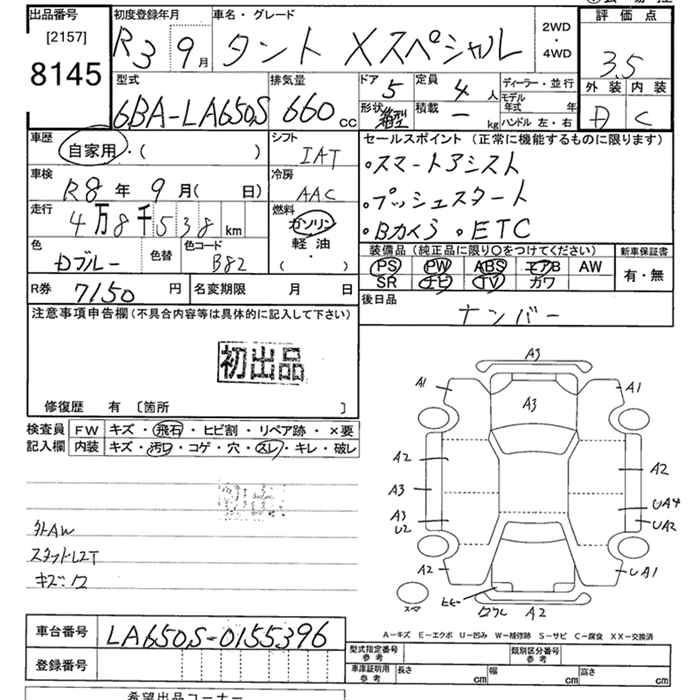 出品番号
[2157]
8145
初度登録年月
R3 9月
車名・グレード
タント Xスペシャル
2WD
・
4WD
評価点
3.5
外装 内装
D C
型式
6BA-LA650S
排気量
660 cc
ドア 5
定員 4 人
形状 箱型
積載 ー kg
ディーラー・並行
モデル年式 年
ハンドル 左・右
車歴
自家用・( )
シフト
IAT
車検
R8年 9月( 日)
冷房
AAC
走行
4万8千538km
燃料
ガソリン
軽油
( ・ )
色
Dブルー
色替
色コード
B82
R券 7150円
名変期限 月 日
セールスポイント(正常に機能するものに限ります)
・スマートアシスト
・プッシュスタート
・Bカメラ ・ETC
装備品(純正品に限り○をつけてください)
新車保証書
PS PW ABS エアB AW
SR ナビ TV カワ
有・無
後日品
ナンバー
注意事項申告欄(不具合内容等は具体的に記入して下さい)
初出品
修復歴 有〔箇所 〕
検査員
記入欄
FW キズ・飛石・ヒビ割・リペア跡・×要
内装 キズ・汚れ・コゲ・穴・スレ・キレ・破レ
外AW
スタットL2T
キズ・ワ
A3
A1
A1
A3
A2
A2
A3
UA4
A3
U2
UA2
A2
UA1
ヒビ
ワレ
A2
スマ
A-キズ E-エクボ U-凹み W-補修跡 S-サビ C-腐食 XX-交換済
車台番号
LA650S-0155396
登録番号
型式指定番号
参考
類別区分番号
参考
車庫証明用
参考
長さ cm
幅 cm
高さ cm
希望出品コーナー